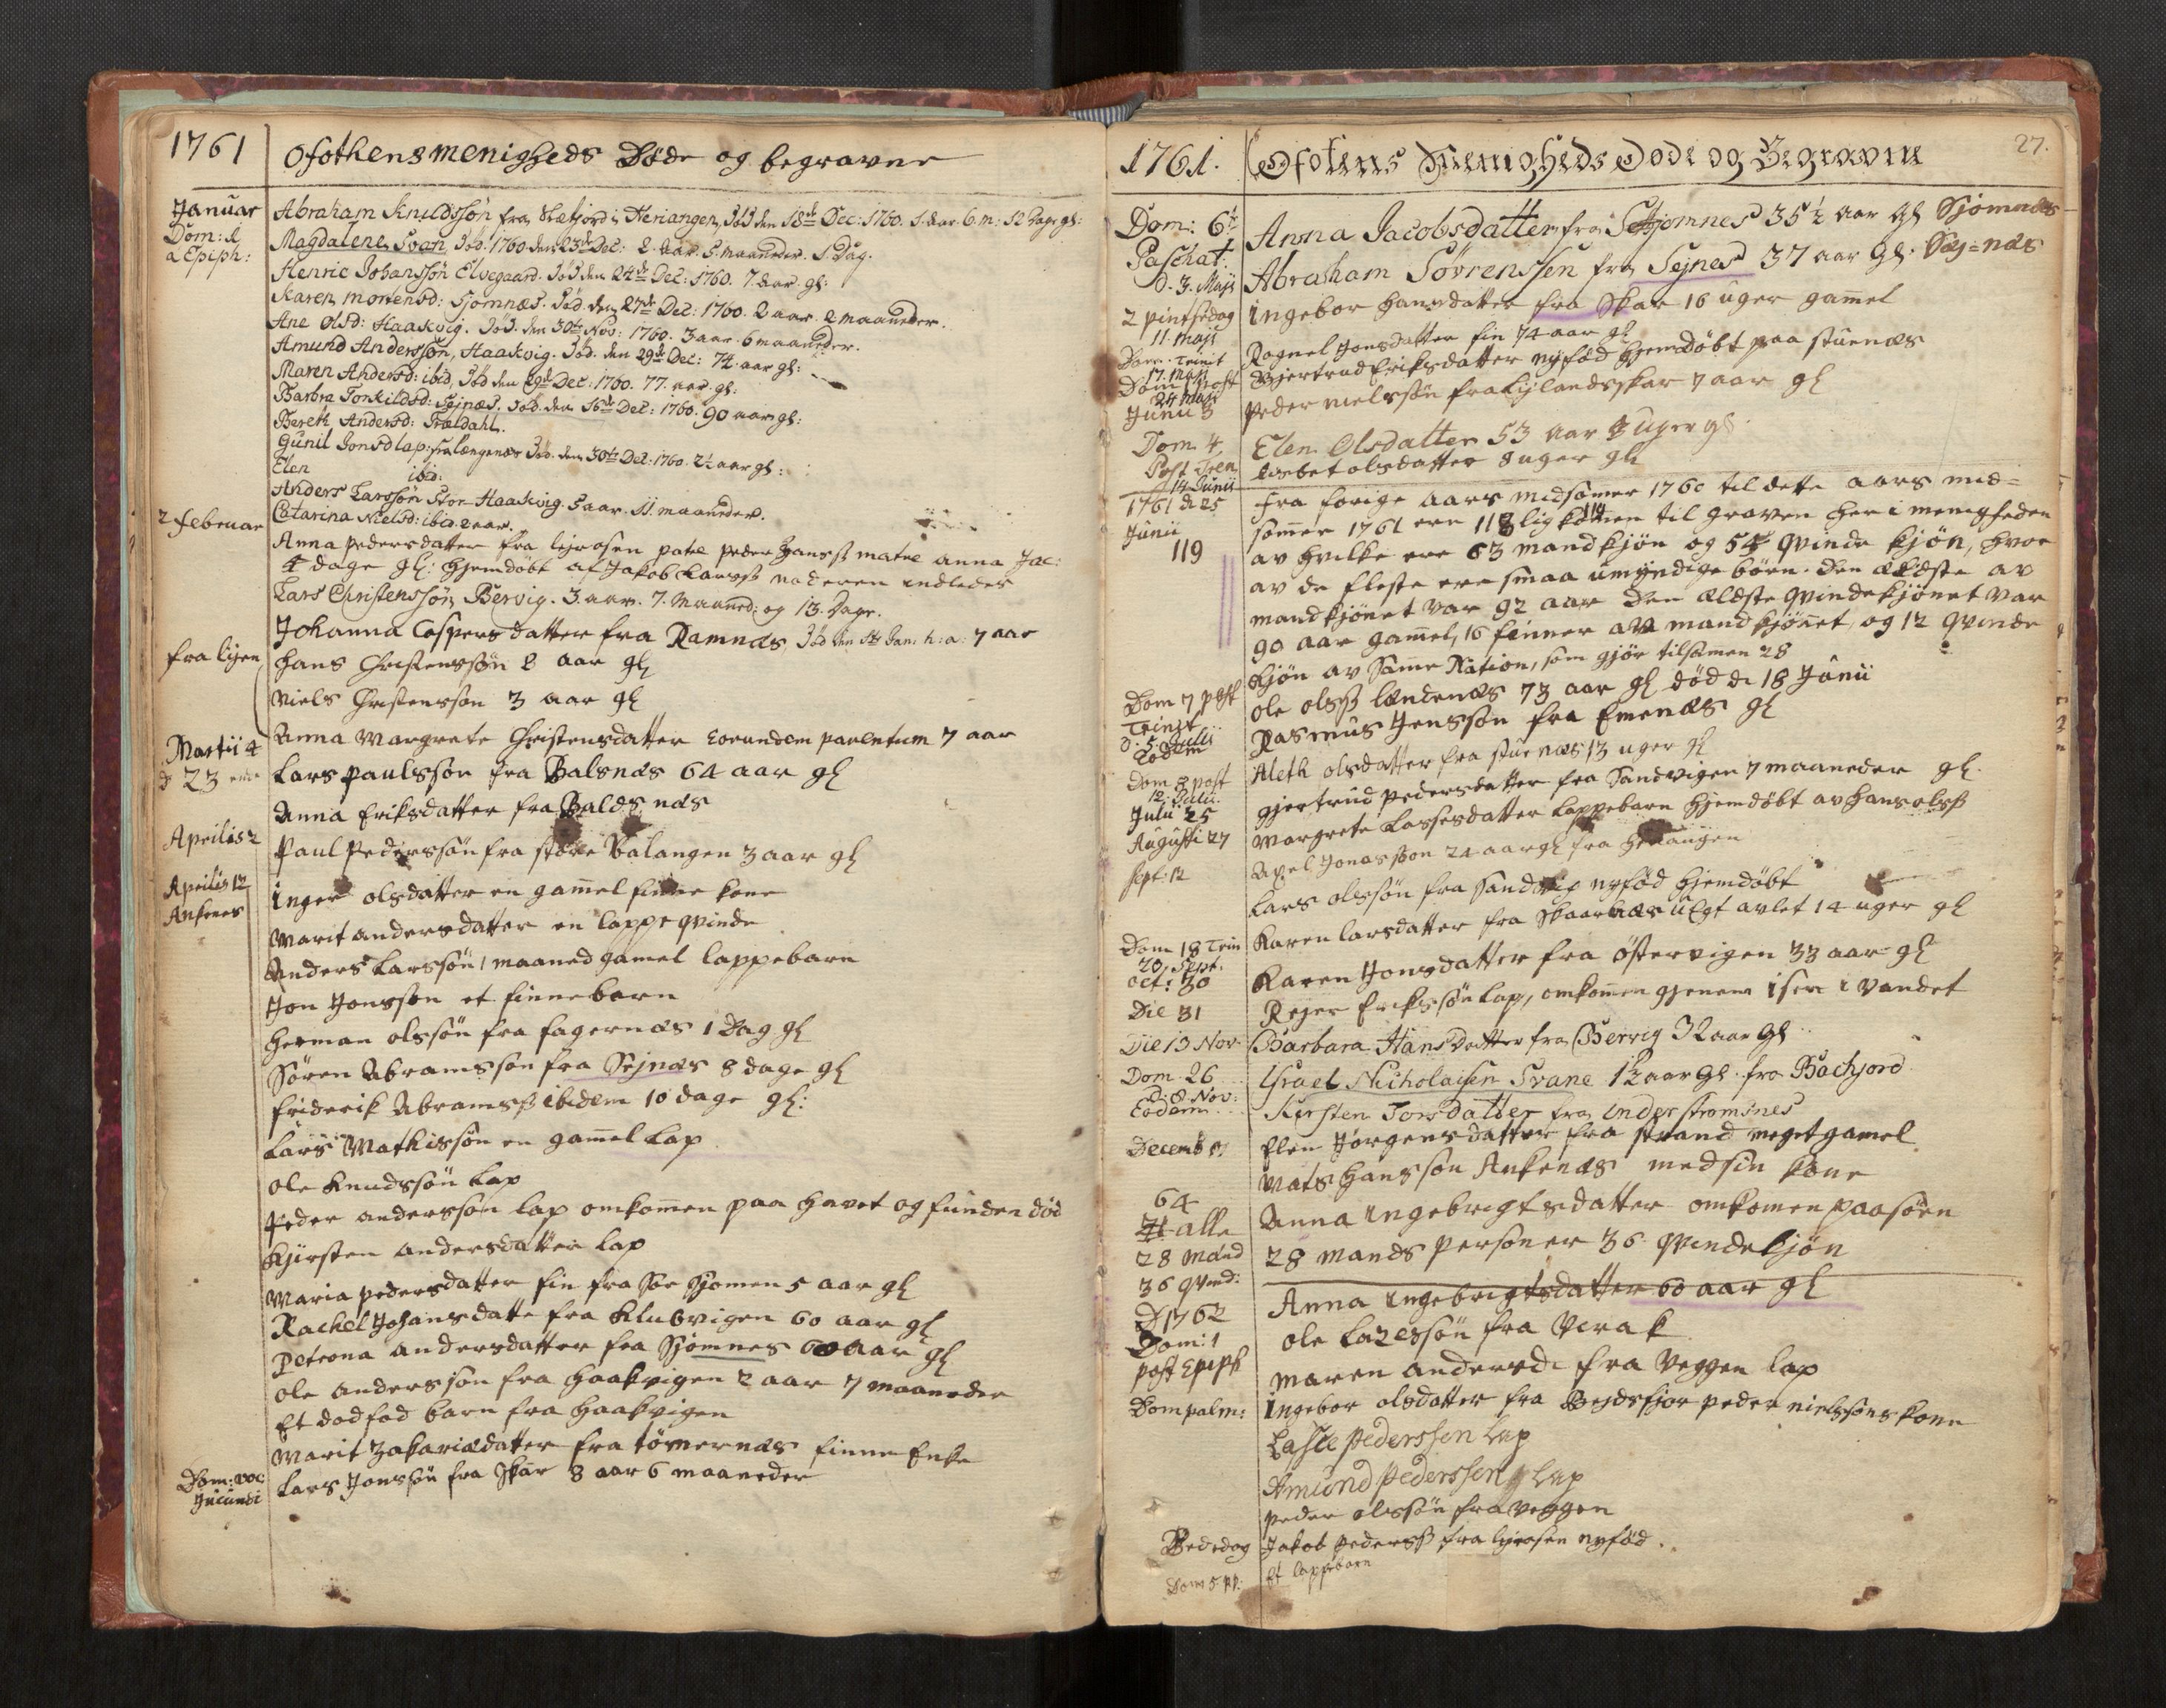 1761 Ofothens menigheds Døde og begravne
Januar Abraham Knudssøn fra Hefjord i Heriangen, død den 18de Dec: 1760. 1. aar. 6. m: 12 Dage gl:
Dom: 1. Magdalene Svan død. 1760 den 23de Dec: 2. aar. 5. maaneder. 1. Dag.
a Epiph: Henric Johanssøn Elvegaard. død den 24de Dec: 1760. 7 aar. gl:
Karen Mortensd: Sjomnæs. død. den 27de Dec: 1760. 2 aar. 2 maaneder.
Ane Olsd: Haakvig. død. den 30te Nov: 1760. 3 aar. 6 maaneder.
Amund Anderssøn, Haakvig. død. den 29de Dec: 74. aar gl:
Maren Andersd: ibid, død den 29de Dec. 1760. 77. aar. gl:
Barbra Tonkildsd: Sejnæs. død. den 16de Dec: 1760. 90 aar gl:
Bereth Andersd: Trældahl.
Gunil Jonsd lap: fra Længenæs død. den 30te Dec: 1760. 2½ aar gl:
Elen ibid:
Anders Larssøn Stor-Haakvig. 5 aar. 11. maaneder.
2 februar Catarina Nielsd: ibid. 2 aar.
Anna Pedersdatter fra lijrosen patre peder Hanss matre anna Jac:
4 dage gl: hjemdøbt af Jakob Larss moderen indleder
Lars Christenssøn Bervig. 3. aar. 7. Maaned: og 13. Dage.
Johanna Caspersdatter fra Ramnæs, død den Jan: h: a: 7 aar
fra lijen Hans Christenssøn 8 aar gl
Niels Christenssøn 3 aar gl
Anna Margrete Christensdatter eorundem parentum 7 aar
Martii 4
d 23 Lars Paulssøn fra Balsnæs 64 aar gl
Anna Eriksdatter fra Baldsnæs
Aprilis 2 Paul Pederssøn fra store Balangen 3 aar gl
Aprilis 12 Inger olsdatter en gammel finne kone
Ankenes Marit andersdatter en lappe qvinde
Anders Larssøn 1 maaned gamel lappebarn
Jon Jonssøn et finnebarn
Herman olssøn fra fagernæs 1 Dag gl
Søren Abramssøn fra Sejnæs 8 dage gl
friderik Abramss ibidem 10 dage gl:
Lars Mathissøn en gammel Lap
Ole Knudssøn Lap
Peder anderssøn lap omkommen paa havet og funden død
Kirsten andersdatter lap
Maria pedersdatter fin fra Sør Sjomen 5 aar gl
Rachel Johansdatte fra Klubvigen 60 aar gl
Petrona andersdatter fra Sjomnes 60 aar gl
Ole anderssøn fra Haakvigen 2 aar 7 maaneder
Et dødfød barn fra Haakvigen
Marit Zakariædatter fra tømernæs finne Enke
Dom: voc: Lars Jonssøn fra Skar 8 aar 6 maaneder
Jucundi
27.
1761. Ofotens Menigheds Døde og Begravne
Dom: 6te Anna Jacobsdatter fra Sjomnes 35½ aar gl Sjomnæs
Paschat:
D. 3. Maji Abraham Sørrenssen fra Sejnes 37 aar gl. Sey=næs
2 pintsedag Ingebor Hansdatter fra Skar 16 uger gammel
11 maji Ragnel Jonsdatter fin 74 aar gl
Dom. Trinit Gjertrud Eriksdatter nyfød hjemdøbt paa stuenæs
17. Maji
Dom 1 post
24 Maji Peder Nielssøn fra Lijlandsskar 7 aar gl
Junii 3
Dom. 4 Elen Olsdatter 53 aar uger gl
Post Tren Lisbet olsdatter 8 uger gl
14 Junii
1761 d 25 fra forige aars midsomer 1760 til dette aars mid=
Junii sommer 1761 ere 118 119 lig komen til graven her i menigheden
119 av hvilke ere 63 mandkjøn og 54 qvinde kjøn, hvor
av de fleste ere smaa umyndige børn. den ældste av
mandkjønet var 92 aar den ældste qvindekjønet var
90 aar gammel, 16 finner av mandkjønnet, og 12 qvinde
kjøn av samme Nation, som gjør tilsamen 28
Dom 7 post Ole olss Lændenæs 73 aar gl død d 18 Junii
Trinit
D: 5 Julii Rasmus Jenssøn fra Emenæs gl
Eodem Aleth olsdatter fra stuenæs 13 uger gl
Dom 8 post Gjertrud pedersdatter fra Sandvigen 7 maaneder gl.
12 Julii
Julii 25 Margrete Lassesdatter lappebarn hjemdøbt av Hans olss
Augusti 27 Axel Jonassøn 24 aar gl fra Heriangen
Sept: 12 Lars olssøn fra Sandvig nyfød hjemdøbt
Karen larsdatter fra Skaarnæs uegt avlet 14 uger gl
Dom 18 Trin
20 Sept. Karen Jonsdatter fra Østervigen 33 aar gl
Oct: 30
Die 31 Rejer Erikssøn lap, omkommen gjenem isen i vandet
Die 13 Nov. Barbara Hansdatter fra Berrig 32 aar gl
Dom. 26 Israel Nicholaisen Svane 12 aar gl. fra Bachjord
Nov:
Eodem Kirsten Torsdatter fra Understromsnes
Decemb Elen Jørgensdatter fra strand meget gamel
Mats Hanssøn Ankenæs med sin kone
64 Anna Ingebrigtsdatter omkomen paa søen
alle
28 mand 28 mands personer 36 qvindekjøn
36 qvind:
D 1762 Anna Ingebrigtsdatter 60 aar gl
Dom: 1 Ole Lazessøn fra Verak
post Epiph Maren andersd: fra Veggen lap
Dom palm: Ingebor olsdatter fra Bejdsfjor peder nielssøns kone
Lasse Pederssen Lap
Amund Pederssen Lap
Peder olssøn fra veggen
Bededag Jakob Pederss fra lijrosen nyfød.
Dom 5 pp: Et lappebarn